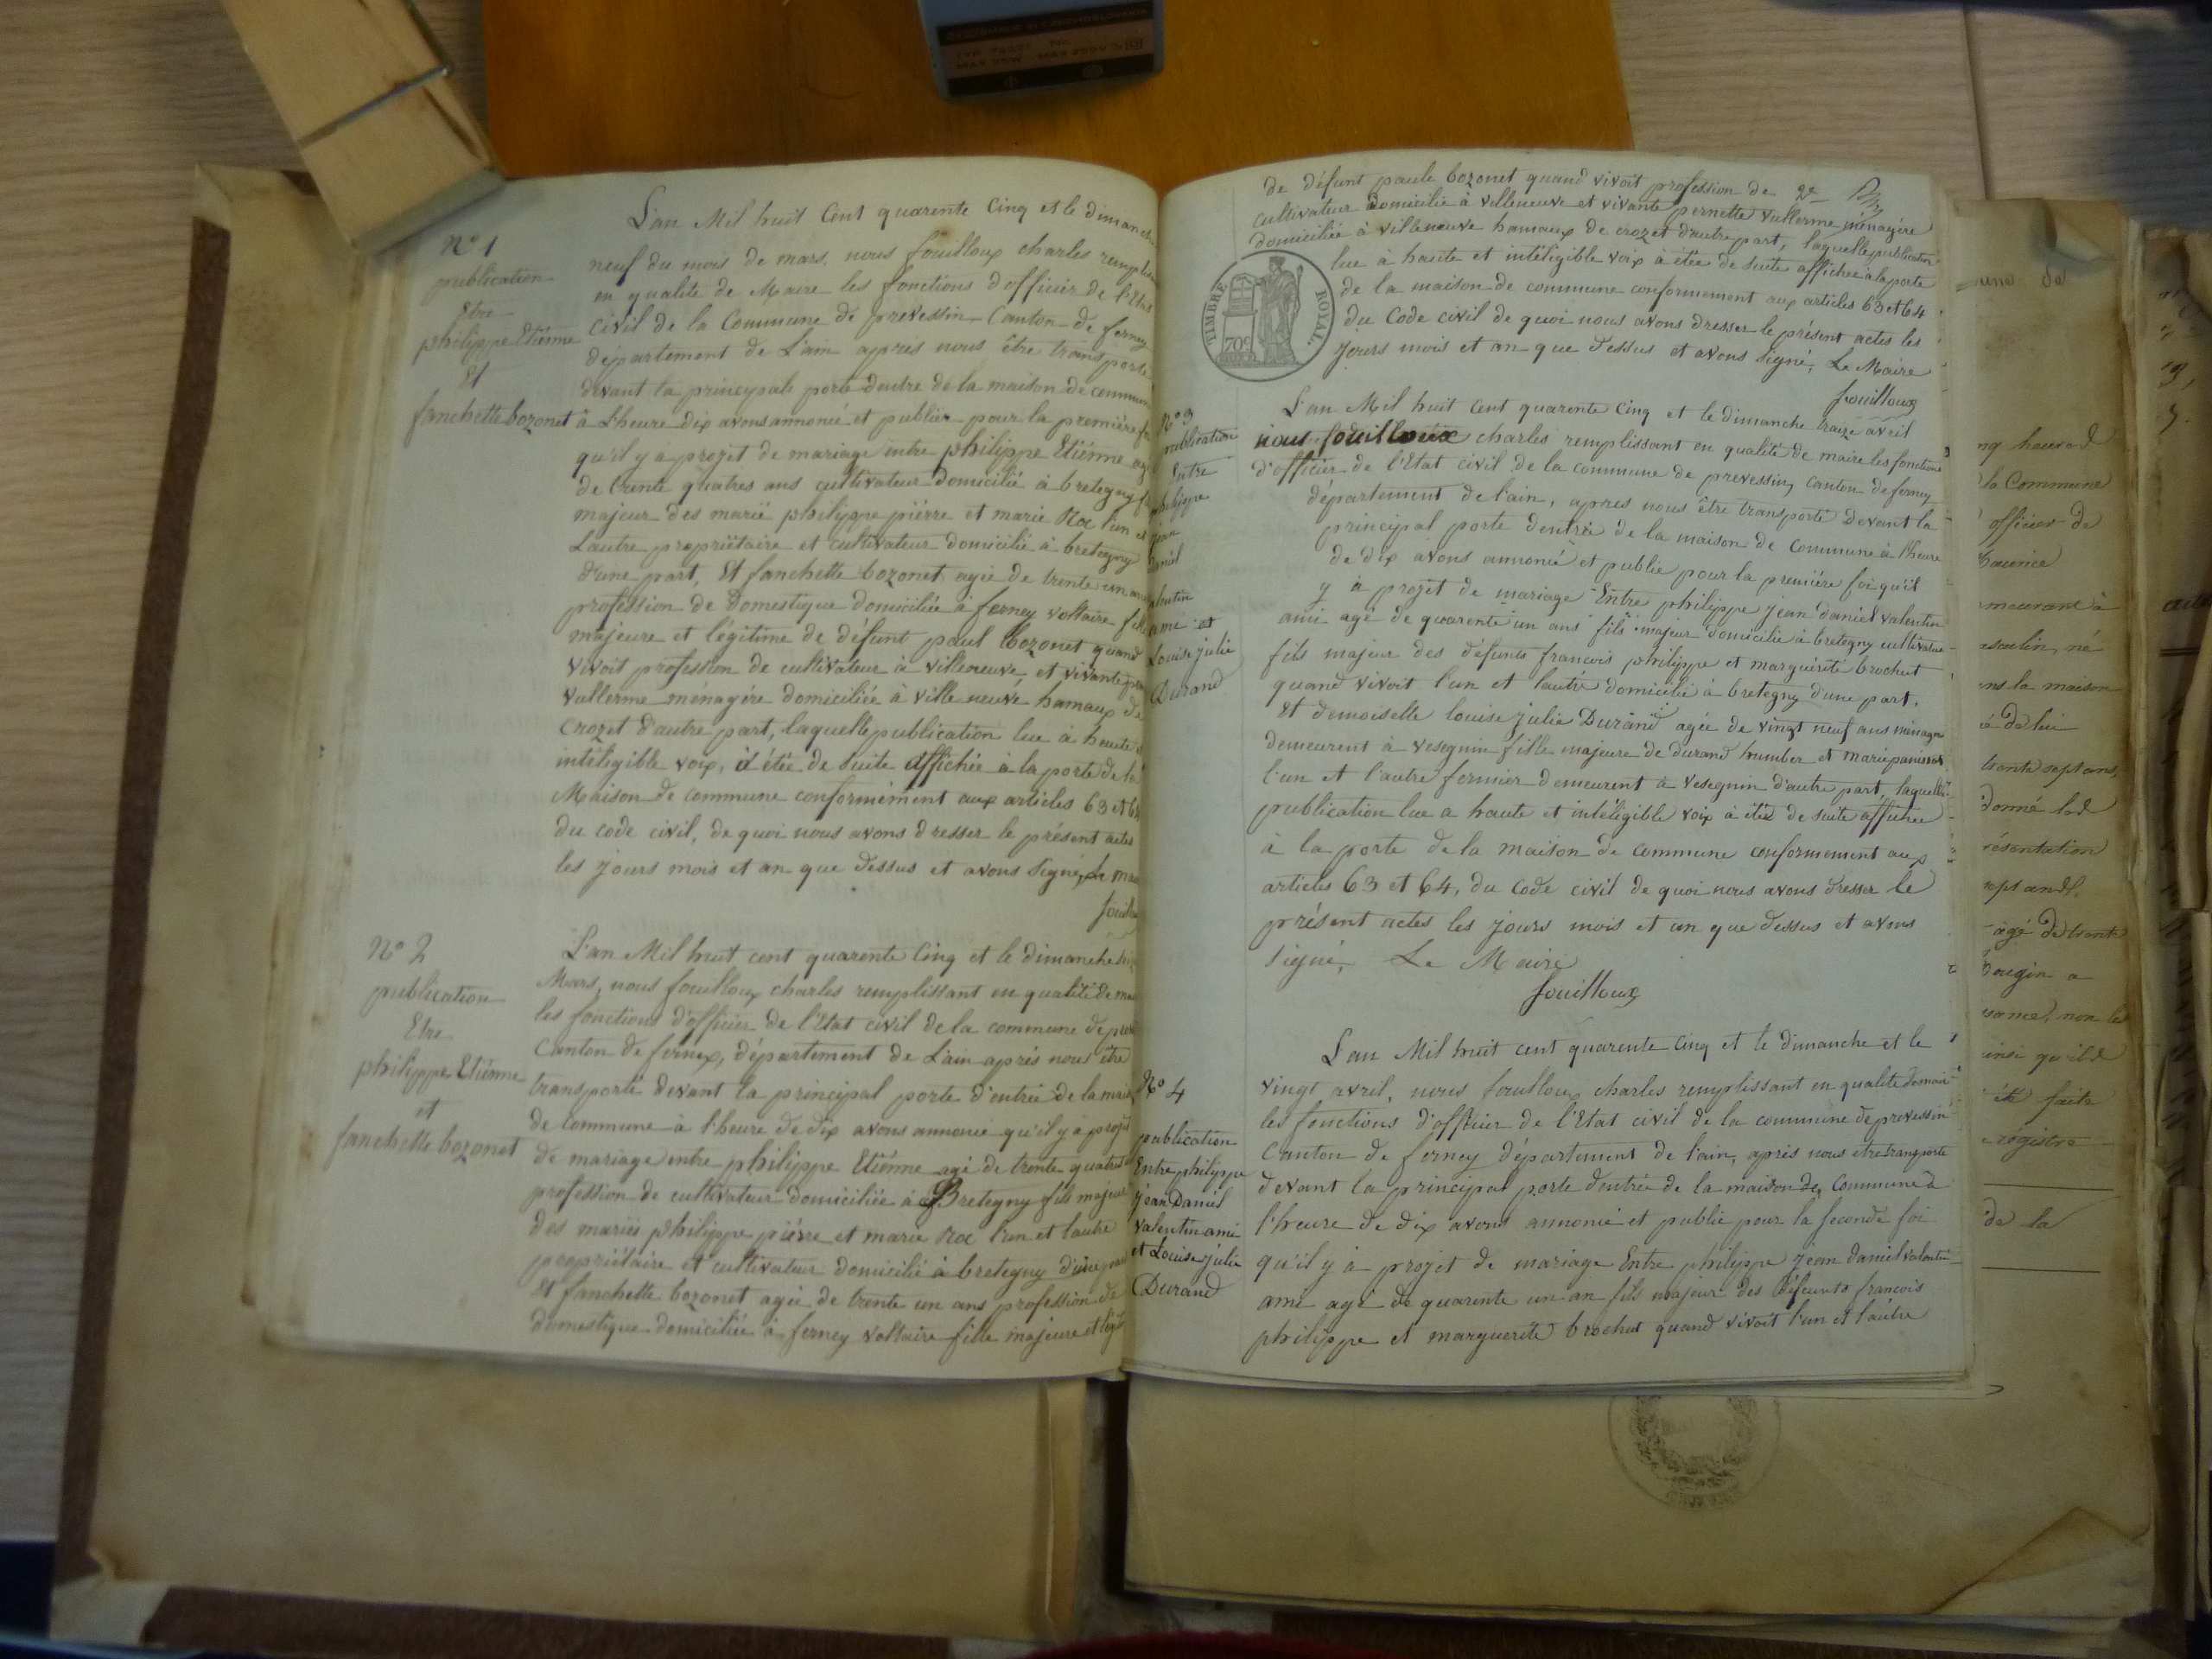 L'an Mil huit Cent quarente Cinq et le dimanche
N° 1
publication
Etre
philippe Etiénne
Et
fanchette bozonet
neuf du mois de mars, nous fouilloux charles
en qualité de Maire les fonctions d'officier de l'Etat
Civil de la Commune de prevessin Canton de ferney
département de L'ain apprés nous être transporté
devant la principale porte dentre de la maison de commune
à l'heure dix avons annoncé et publier pour la premiére
qu'il y à projet de mariage entre philippe Etiénne
de trente quatres ans cultivateur domicilié à bretegny
majeur des marié philippe piérre et marie Roc l'un et
Lautre propriétaire et cultivateur domicilié à bretegny
d'une part, Et fanchette bozonet agée de trente un ans
profession de domestique domiciliée à ferney voltaire fille
majeure et légitime de défunt paul bozonet quand
vivoit profession de cultivateur à villeneuve, et vivante
vullerme ménagére domiciliée à ville neuve hamaux de
Crozet d'autre part, laquelle publication lue à haute
intéligible voix, à étée de suite affichée à la porte de la
Maison de commune conformément aux articles 63 et 64
du code civil, de quoi nous avons dresser le présent actes
les jours mois et an que dessus et avons signé, Le
N° 2
publication
Etre
philippe Etiénne
et
fanchette bozonet
L'an Mil huit cent quarente Cinq et le dimanche
Mars, nous fouilloux charles remplissant en qualité de
les fonctions d'officier de l'Etat civil de la commune de
Canton de ferney, département de L'ain aprés nous être
transporté devant la principal porte d'entrée de la
de commune à l'heure de dix avons annonce qu'il y à projet
de mariage entre philippe Etiénne agé de trente quatres
profession de cultivateur domiciliée à Bretegny fils majeur
des mariés philippe piérre et marie Roc l'un et lautre
propriétaire et cultivateur domicilié à bretegny d'une
Et fanchette bozonet agée de trente un ans profession de
domestique domiciliée à ferney voltaire fille majeure et
de défunt paule bozonet quand vivoit profession de 2e
cultivateur domicilié à villeneuve et vivante pernette vullerme ménagére
domiciliée à villeneuve hamaux de crozet d'autre part, laquelle publication
lue à haute et intéligible voix à étée de suite affichée à la porte
de la maison de commune conformement aux articles 63 et 64
du Code civil de quoi nous avons dresser le présent actes les
jours mois et an que dessus et avons signé, Le Maire
fouilloux
TIMBRE ROYAL
70c
N° 3
publication
Entre
philippe
jean
Louise julie
Durand
L'an Mil huit cent quarente Cinq et le dimanche traize avril
nous fouilloux charles remplissant en qualité de maire les fonctions
d'officier de l'Etat civil de la commune de prevessin, canton de ferney
département de l'ain, apres nous être transporté Devant la
principal porte d'entrée de la maison de commune à l'heure
de dix avons annoncé et publie pour la premiére foi qu'il
y à projet de mariage Entre philippe jean daniel valentin
ami agé de quarente un ans fils majeur domicilié à bretegny cultivateur
fils majeur des défunts francois philippe et marguérité brochut
quand vivoit l'un et l'autre domicilié à bretegny dune part.
Et demoiselle louise julie Durand agée de vingt neuf ans
demeurent à vesegnin fille majeure de durand humber et
l'un et l'autre fermier demeurent à vesegnin d'autre part, laquelle
publication lue a haute et intéligible voix à étée de suite affichée
à la porte de la maison de commune conformement aux
articles 63 et 64, du code civil de quoi nous avons dresser le
présent actes les jours mois et an que dessus et avons
signé, Le Maire
fouilloux
N° 4
publication
Entre philippe
jean Daniel
valentin ami
et Louise julie
Durand
L'an Mil huit cent quarente Cinq et le dimanche et le
vingt avril, nous fouilloux charles remplissant en qualité
les fonctions d'officier de l'Etat civil de la commune de prevessin
Canton de ferney département de l'ain, aprés nous etre transporté
devant la principal porte d'entrée de la maison de commune à
l'heure de dix avons annoncé et publie pour la seconde foi
qu'il y à projet de mariage Entre philippe jean daniel valentin
ami agé de quarente un an fils majeur des défeunts francois
philippe et marguerite brochut quand vivoit l'un et l'autre
la Commune
officier de
ns la maison
donné
age de trente
non le
été faite
registre
de la